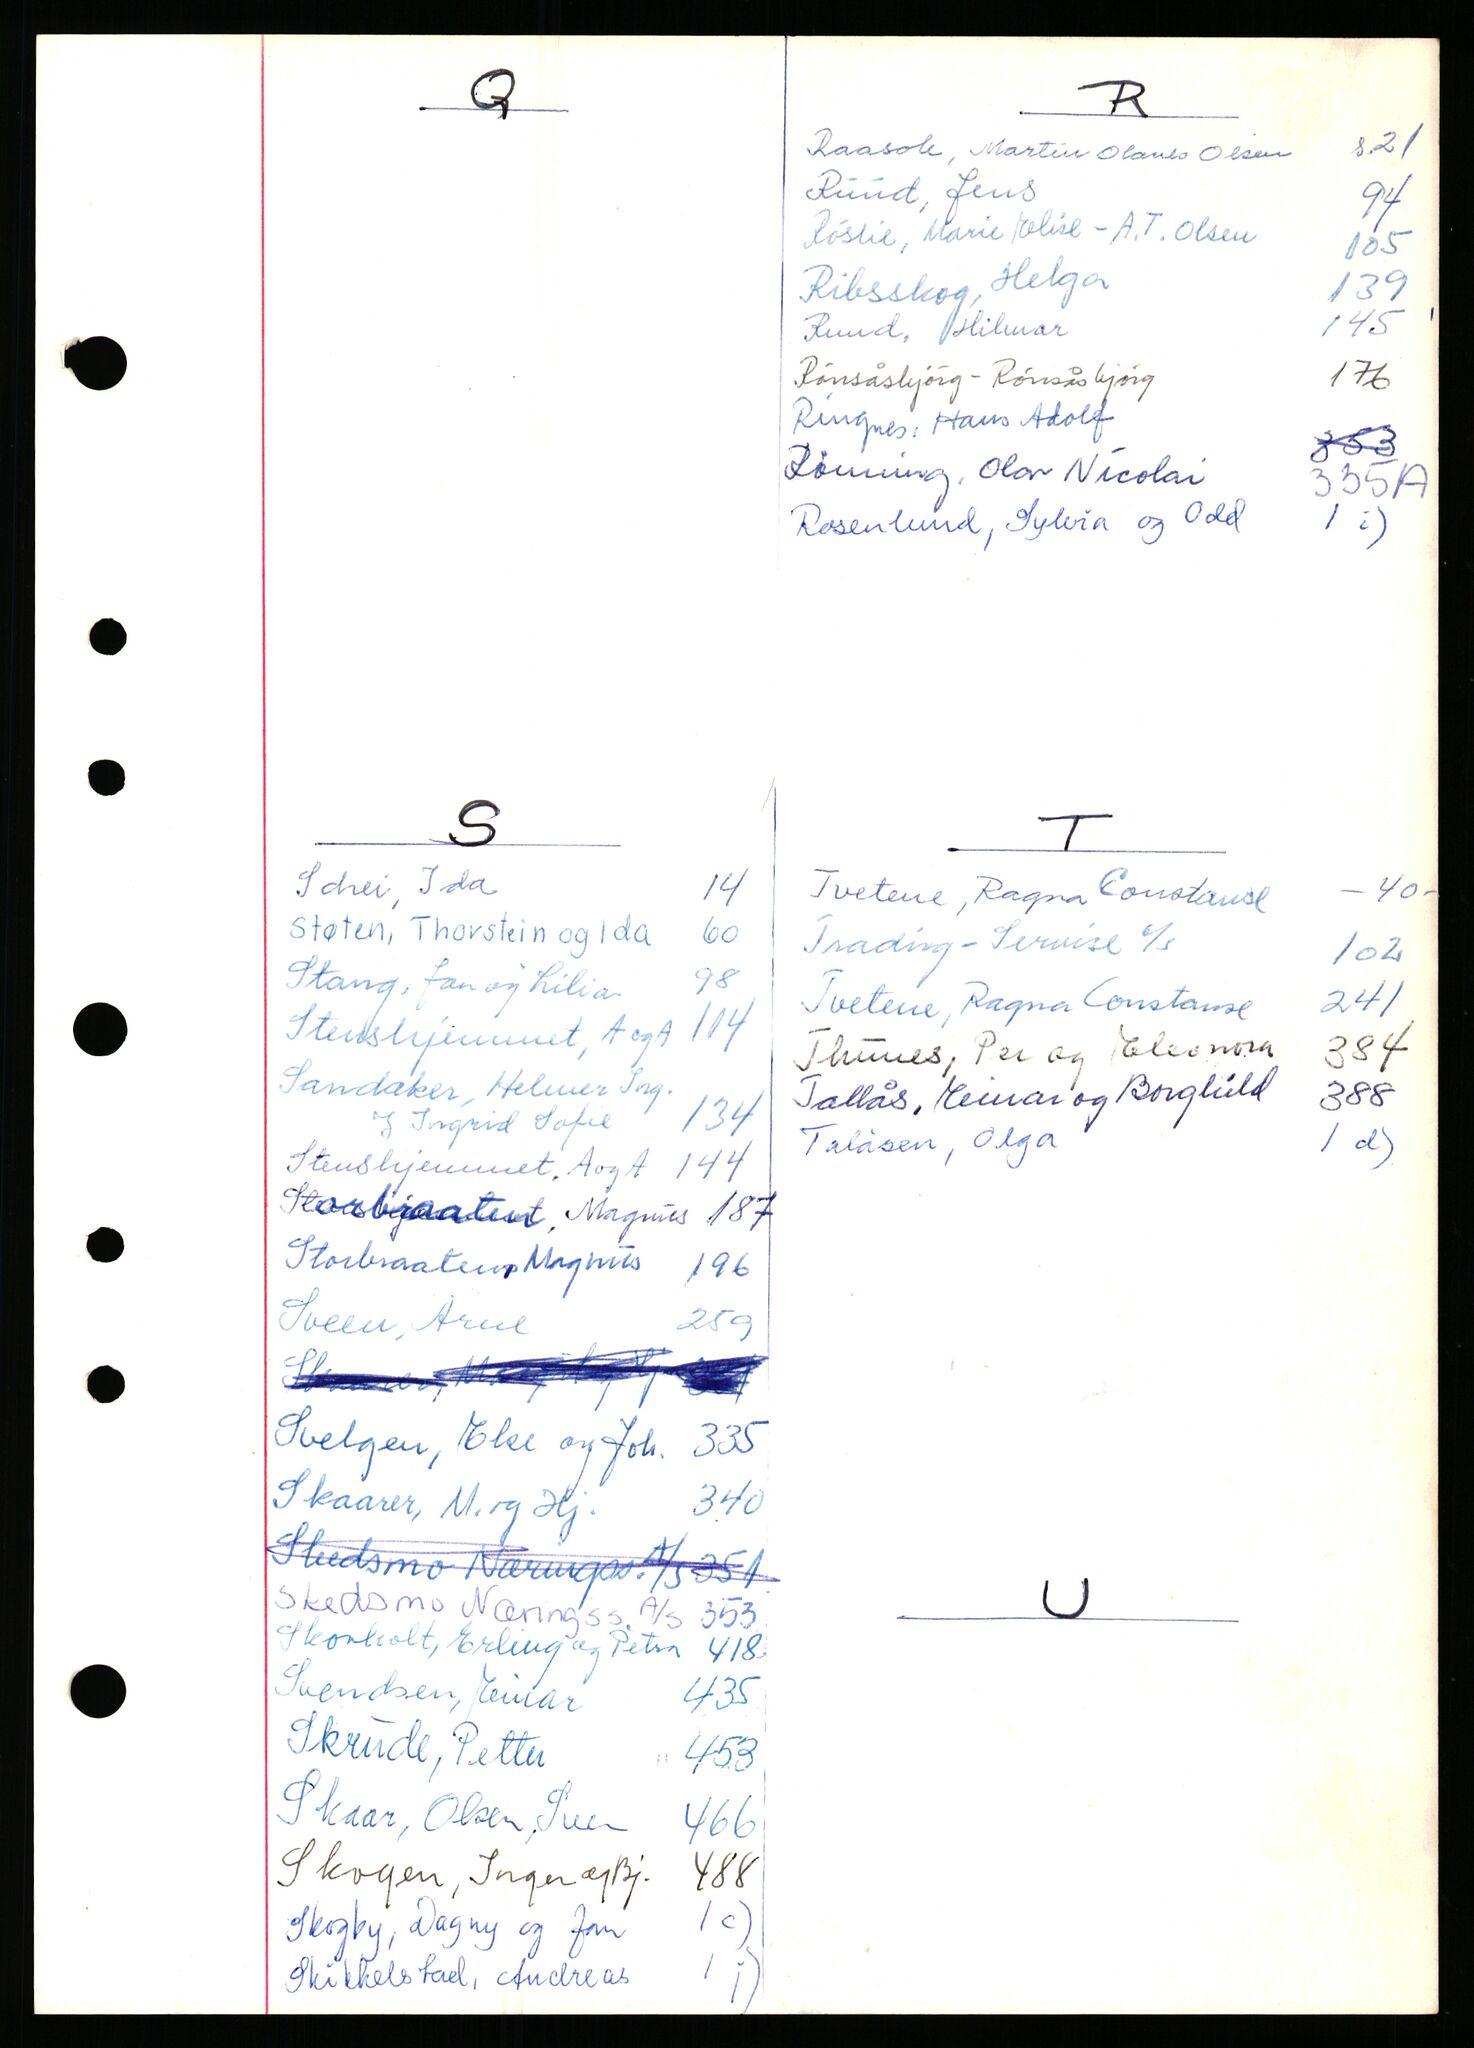 Q
R
Raasok, Martin Olanes Olsen s.21
Ruud, Jens 94
Røslie, Marie Elise - A.T. Olsen 105
Ribsskog, Helga 139
Ruud, Hilmar 145
Rønsåsbjørg - Rønsåsbjørg 176
Ringnes, Hans Adolf 353
Rønning, Olav Nicolai 335A
Rosenlund, Sylvia og Odd 1 i)
S
Schei, Ida 14
Støten, Thorstein og Ida 60
Stang, Jan og Lilia 98
Stenshjemmet, A og A 114
Sandaker, Helmer Ing.
og Ingrid Sofie 134
Stenshjemmet, A og A 144
Storbraaten, Magnus 187
Storbraaten, Magnus 196
Sveen, Arne 259
Svelgen, Else og Joh. 335
Skaarer, M. og Hj. 340
Skedsmo Næringss. A/S 351
Skedsmo Næringss. A/S 353
Skonholt, Erling og Petra 418
Svendsen, Einar 435
Skrude, Petter 453
Skaar, Olsen, Sven 466
Skogen, Inger og Bj. 488
Skogby, Dagny og Jan 1 c)
Skikkelstad, Andreas 1 j)
T
Tvetene, Ragna Constanse - 40 -
Trading - Servise A/S 102
Tvetene, Ragna Constanse 241
Thunes, Per og Eleonora 384
Tallås, Einar og Borghild 388
Talåsen, Olga 1 d)
U